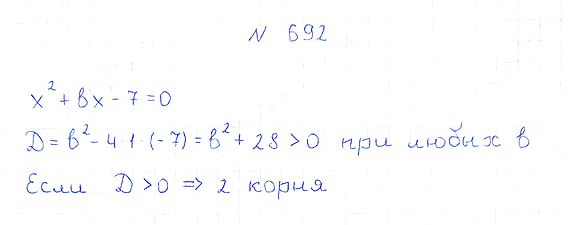 № 692
x² + вx - 7 = 0
D = в² - 4·1·(-7) = в² + 28 > 0 при любых в
Если D > 0 => 2 корня